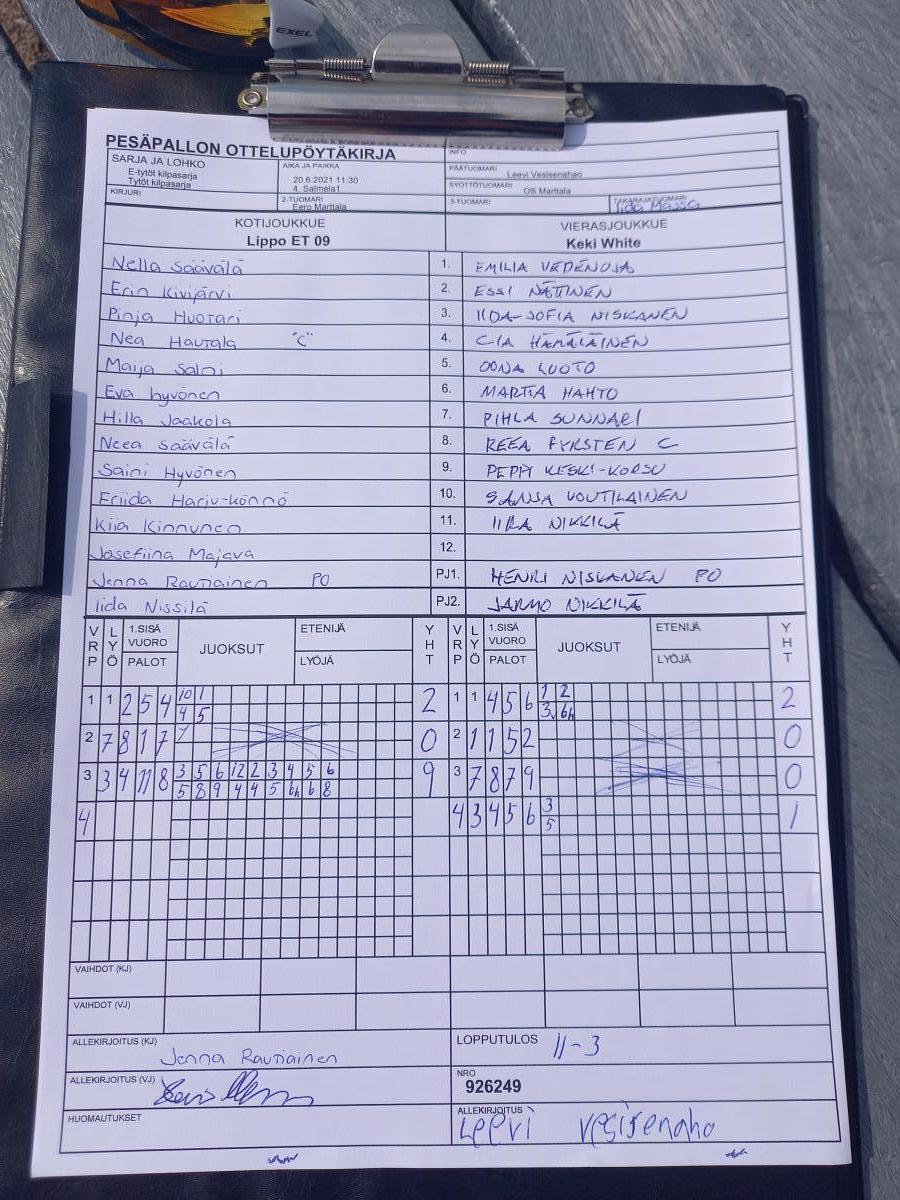 EXEL
PESÄPALLON OTTELUPÖYTÄKIRJA
INFO
SARJA JA LOHKO
E-tytöt kilpasarja
Tytöt kilpasarja
AIKA JA PAIKKA
20.6.2021 11:30
4. Salmela1
PÄÄTUOMARI
Leevi Vesisenaho
SYÖTTÖTUOMARI
Olli Marttala
KIRJURI
2-TUOMARI
Eero Marttala
3-TUOMARI
TAKARAJATUOMARI
Iida Massa
KOTIJOUKKUE
Lippo ET 09
VIERASJOUKKUE
Keki White
Nella Säävälä 1. EMILIA VEDENOJA
Erin Kivijärvi 2. ESSI NÄTTINEN
Pinja Huotari 3. IIDA-SOFIA NISKANEN
Nea Hautala "C" 4. CIA HÄMÄLÄINEN
Maija Salmi 5. OONA LUOTO
Eva hyvönen 6. MARTTA HAHTO
Hilla Jaakola 7. PIHLA SUNNARI
Neea Säävälä 8. REEA FYRSTEN C
Saini Hyvönen 9. PEPPI KESKI-KORSU
Friida Harju-könnö 10. SANSA VOUTILAINEN
Kiia Kinnunen 11. IIRA NIKKILÄ
Josefiina Majava 12.
Jenna Rautiainen PO PJ1. HENRI NISKANEN PO
Iida Nissilä PJ2. JARMO NIKKILÄ
VRP LYÖ 1.SISÄ VUORO PALOT JUOKSUT ETENIJÄ LYÖJÄ YHT VRP LYÖ 1.SISÄ VUORO PALOT JUOKSUT ETENIJÄ LYÖJÄ YHT
1 1 2 5 4 10 1 2 1 1 4 5 6 1 2 2
4 5 3 6h
2 7 8 1 7 7 0 2 1 1 5 2 0
3 3 4 11 8 3 5 6 12 2 3 4 5 6 9 3 7 8 7 9 0
5 8 9 4 4 5 6h 6 8
4 4 3 4 5 6 3 1
5
VAIHDOT (KJ)
VAIHDOT (VJ)
ALLEKIRJOITUS (KJ)
Jenna Rautiainen
LOPPUTULOS 11-3
ALLEKIRJOITUS (VJ)
NRO
926249
HUOMAUTUKSET
ALLEKIRJOITUS
Leevi Vesisenaho